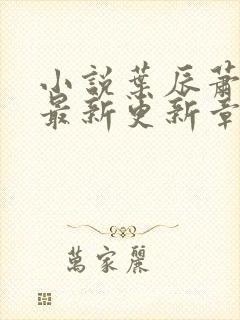 小説葉辰蕭
最新更新章
萬家麗